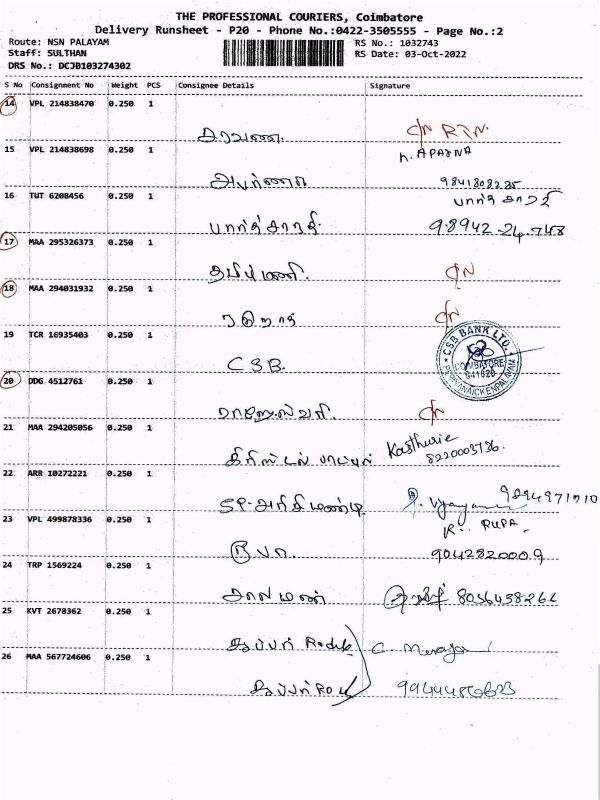 THE PROFESSIONAL COURIERS, Coimbatore
Delivery Runsheet - P20 - Phone No.:0422-3505555 - Page No.:2
Route: NSN PALAYAM RS No.: 1032743
Staff: SULTHAN RS Date: 03-Oct-2022
DRS No.: DCJB103274302
S No Consignment No Weight PCS Consignee Details Signature
14 VPL 214838470 0.250 1
சரவண C/N RTN.
15 VPL 214838698 0.250 1 APARNA
அபர்ணா
16 TUT 6208456 0.250 1 பார்த்சாரதி
பார்த்சாரதி
17 MAA 295326373 0.250 1
தமிழ்மணி. C/N
18 MAA 294031932 0.250 1
C/N
19 TCR 16935403 0.250 1
CSB. CSB BANK LTD. COIMBATORE
20 DDG 4512761 0.250 1
ராஜேஸ்வரி. C/N
21 MAA 294205056 0.250 1 Kasthurie
8220003736.
22 ARR 10272221 0.250 1
SP-அரிசிமண்டி
23 VPL 499878336 0.250 1 R. RUPA
ரூபா. 9042820009
24 TRP 1569224 0.250 1
சாலமன்
25 KVT 2678362 0.250 1
சூப்பர்
26 MAA 567724606 0.250 1
சூப்பர்